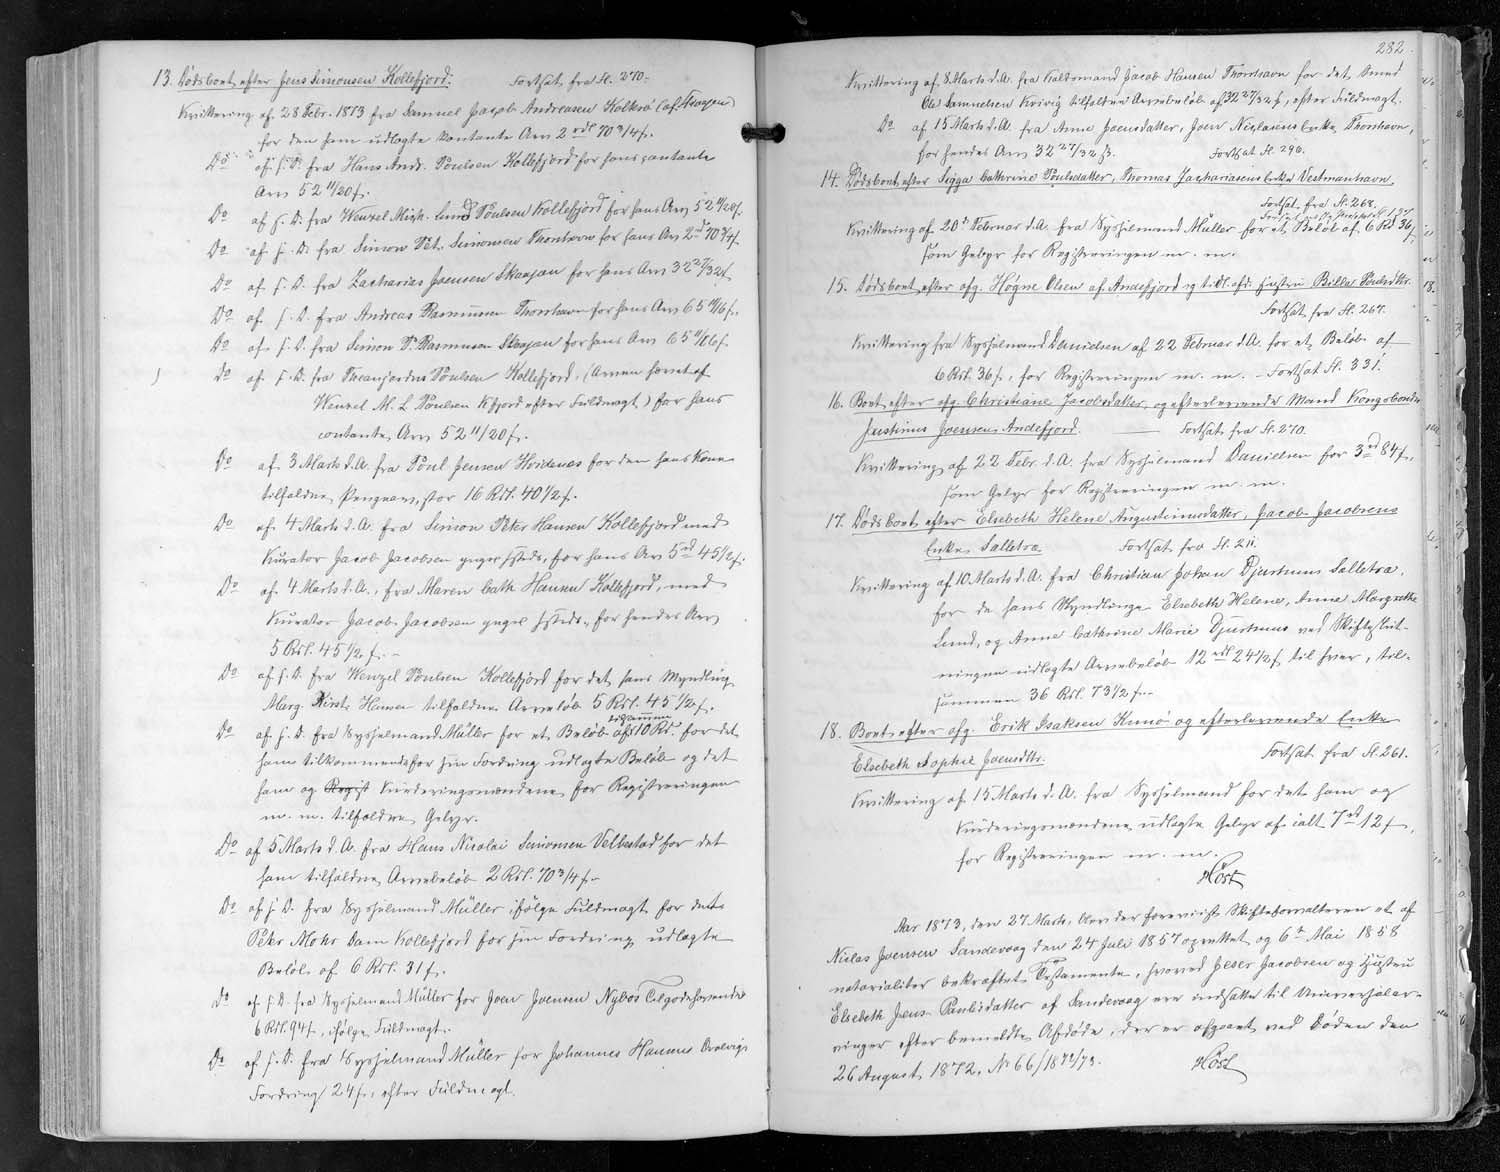 13. Dødsboet efter Jens Simonsen Kollefjord. Fortsat fra fl. 270.
Kvittering af 28 Febr. 1873 fra Samuel Jacob Andreasen Kolkrø (af Skaapen)
for den ham udlagte kontante Arv 2 rdl 70 3/4 s.
Do af s. D. fra Hans Andr. Poulsen Kollefjord for hans contante
Arv 52 11/20 s.
Do af s. D. fra Wenzel Mich. Lund Poulsen Kollefjord for hans Arv 52 11/20 s.
Do af s. D. fra Simon Pet. Simonsen Thorshavn for hans Arv 2 rd 70 3/4 s.
Do af s. D. fra Zacharias Joensen Skaapen for hans Arv 32 27/32 s.
Do af s. D. fra Andreas Rasmussen Thorshavn for hans Arv 65 11/16 s.
Do af s. D. fra Simon P. Rasmussen Skaapen for hans Arv 65 11/16 s.
Do af s. D. fra Theanjordus Poulsen Kollefjord, (Arven hævet af
Wenzel M. L. Poulsen Kfjord efter Fuldmagt) for hans
contante Arv 52 11/20 s.
Do af 3 Marts d. A. fra Poul Jensen Hvidenes for den hans Kone
tilfaldne Pengearv, stor 16 Rdl. 40 1/2 s.
Do af 4 Marts d. A. fra Simon Peter Hansen Kollefjord med
Kurator Jacob Jacobsen ibid. for hans Arv 5 rd 45 1/2 s.
Do af 4 Marts d. A. fra Maren Cath. Hansen Kollefjord, med
Kurator Jacob Jacobsen for hendes Arv
5 Rdl. 45 1/2 s. -
Do af s. D. fra Wenzel Poulsen Kollefjord for det hans Myndling
Marg. Kirst. Hansen tilfaldne Arveløb 5 Rdl. 45 1/2 s.
Do af s. D. fra Sysselmand Müller for et Beløb tilsammen af 10 Rd. for det
ham tilkommende for sin Fordring udlagte Beløb og det
ham og Regist Vurderingsmændene for Registreringen
m. m. tilfaldne Gebyr.
Do af 5 Marts d. A. fra Hans Nicolai Simonsen Velbestad for det
ham tilfaldne Arvebeløb 2 Rdl. 70 3/4 s.
Do af s. D. fra Sysselmand Müller ifølge Fuldmagt for det
Peter Mohr Dam Kollefjord for sin Fordring udlagte
Beløb af 6 Rdl. 31 s.
Do af s. D. fra Sysselmand Müller for Joen Joensen Nybøs Tilgodehavende
6 Rdl. 94 s., ifølge Fuldmagt.
Do af s. D. fra Sysselmand Müller for Johannes Hansens
Fordring 24 s., efter Fuldmagt.
282.
Kvittering af 8 Marts d. A. fra Jacob Hansen Thorshavn for det Smed
Ole Samuelsen Kvivig tilfaldne Arvebeløb af 32 27/32 s., efter Fuldmagt.
Do af 15 Marts d. A. fra Anne Joensdatter, Joen Niclasens Enke, Thorshavn,
for hendes Arv 32 27/32 s. Fortsat fl. 296.
14. Dødsboet efter Sigga Cathrine Poulsdatter, Thomas Zachariasens Enke Vestmanhavn,
Fortsat fra fl. 268.
Kvittering af 20de Februar d. A. fra Sysselmand Müller for et Beløb af 6 Rd 36 s.
som Gebyr for Registreringen m. m.
15. Dødsboet efter afg. Høgne Olsen af Andefjord og tidl. afd. Hustru Billa Poulsdtr.
Fortsat fra fl. 267.
Kvittering fra Sysselmand Danielsen af 22 Februar d. A. for et Beløb af
6 Rdl. 36 s., for Registreringen m. m. - Fortsat fl. 331.
16. Boet efter afg. Christiane Jacobsdatter og efterlevende Mand Kongsbonde
Justinus Joensen Andefjord. Fortsat fra fl. 270.
Kvittering af 22 Febr. d. A. fra Sysselmand Danielsen for 3 rd 84 s.,
som Gebyr for Registreringen m. m.
17. Dødsboet efter Elsebeth Helene Augustinusdatter, Jacob Jacobsens
Enke Salletræ Fortsat fra fl. 211.
Kvittering af 10 Marts d. A. fra Christian Johan Djurhuus Salletræ,
for de hans Myndlinge Elsebeth Helene, Anne Margrethe
Lund, og Anne Cathrine Marie Djurhuus ved Skifteslut-
ningen udlagte Arvebeløb 12 rdl 24 1/2 s. til hver, til-
sammen 36 Rdl. 73 1/2 s.
18. Boet efter afg. Erik Isaksen Kunø og efterlevende Enke
Elsebeth Sophie Joensdtr. Fortsat fra fl. 261.
Kvittering af 15 Marts d. A. fra Sysselmand for det ham og
Vurderingsmændene udlagte Gebyr af ialt 7 rd 12 s.,
for Registreringen m. m.
Høst
Aar 1873, den 27 Marts, blev der foreviist Skifteforvalteren et af
Niclas Joensen Sandevaag den 24 Juli 1857 oprettet og 6te Mai 1858
notarialiter bekræftet Testamente, hvorved Jeser Jacobsen og Hustru
Elsebeth Jens-Paulsdatter af Sandevaag ere indsatte til Universalar-
vinger efter bemeldte Afdøde, der er afgaaet ved Døden den
26 August 1872, No 66/1872/73.
Høst